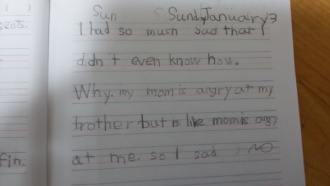 Sun Sundy January 3
I had so much sad that I
didn't even know how.
Why. my mom is angry at my
brother but is like mom is angy
at me. so I sad
fin.